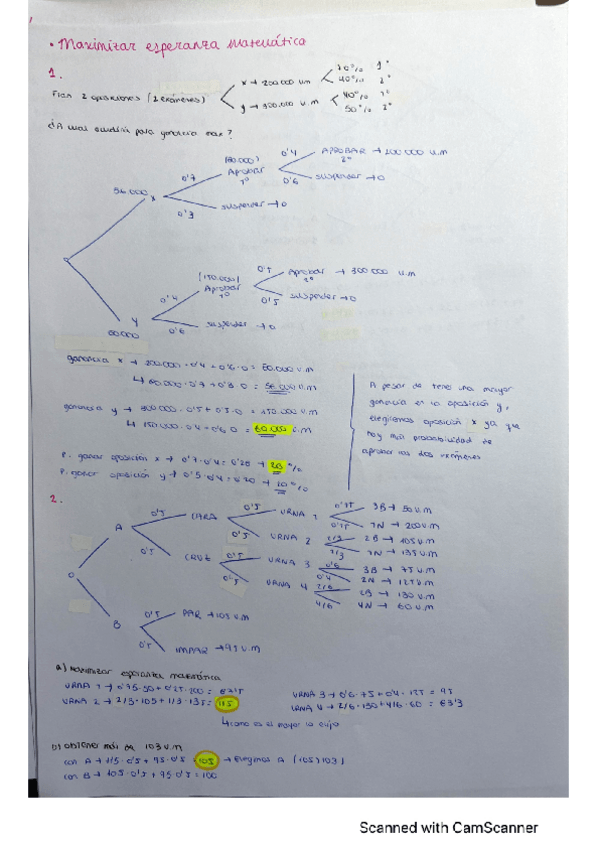 • Maximizar esperanza matemática
1.
Fran 2 oposiciones (2 exámenes)
x → 200.000 u.m
70% 1º
40% 2º
y → 300.000 u.m
40% 1º
50% 2º
¿A cual estudiará para ganancia max?
56.000 x
0'7
(80.000)
Aprobar
1º
0'4
APROBAR → 200.000 u.m
2º
0'6
suspender → 0
0'3
suspender → 0
y
60.000
0'4
(150.000)
Aprobar
1º
0'5
Aprobar → 300.000 u.m
2º
0'5
suspender → 0
0'6
suspender → 0
ganancia x → 200.000 · 0'4 + 0'6 · 0 = 80.000 u.m
↳ 80.000 · 0'7 + 0'3 · 0 = 56.000 u.m
ganancia y → 300.000 · 0'5 + 0'5 · 0 = 150.000 u.m
↳ 150.000 · 0'4 + 0'6 · 0 = 60.000 u.m
A pesar de tener una mayor
ganancia en la oposición y,
elegiremos oposición x ya que
hay más probabilidad de
aprobar los dos exámenes
P. ganar oposición x → 0'7 · 0'4 = 0'28 → 28 %
P. ganar oposición y → 0'5 · 0'4 = 0'20 →
2.
A
0'5
CARA
0'5
URNA 1
0'75
3B → 50 u.m
0'25
1N → 200 u.m
0'5
URNA 2
2/3
2B → 105 u.m
1/3
1N → 135 u.m
0'5
CRUZ
0'5
URNA 3
0'6
3B → 75 u.m
0'4
2N → 125 u.m
0'5
URNA 4
2/6
2B → 130 u.m
4/6
4N → 60 u.m
B
0'5
PAR → 105 u.m
0'5
IMPAR → 95 u.m
a) Maximizar esperanza matemática
URNA 1 → 0'75 · 50 + 0'25 · 200 = 87'5
URNA 2 → 2/3 · 105 + 1/3 · 135 = 115
URNA 3 → 0'6 · 75 + 0'4 · 125 = 95
URNA 4 → 2/6 · 130 + 4/6 · 60 = 83'3
↳ como es el mayor lo cojo
b) obtener más de 103 u.m
con A → 115 · 0'5 + 95 · 0'5 = 105 → Elegimos A (105>103)
con B → 105 · 0'5 + 95 · 0'5 = 100
Scanned with CamScanner